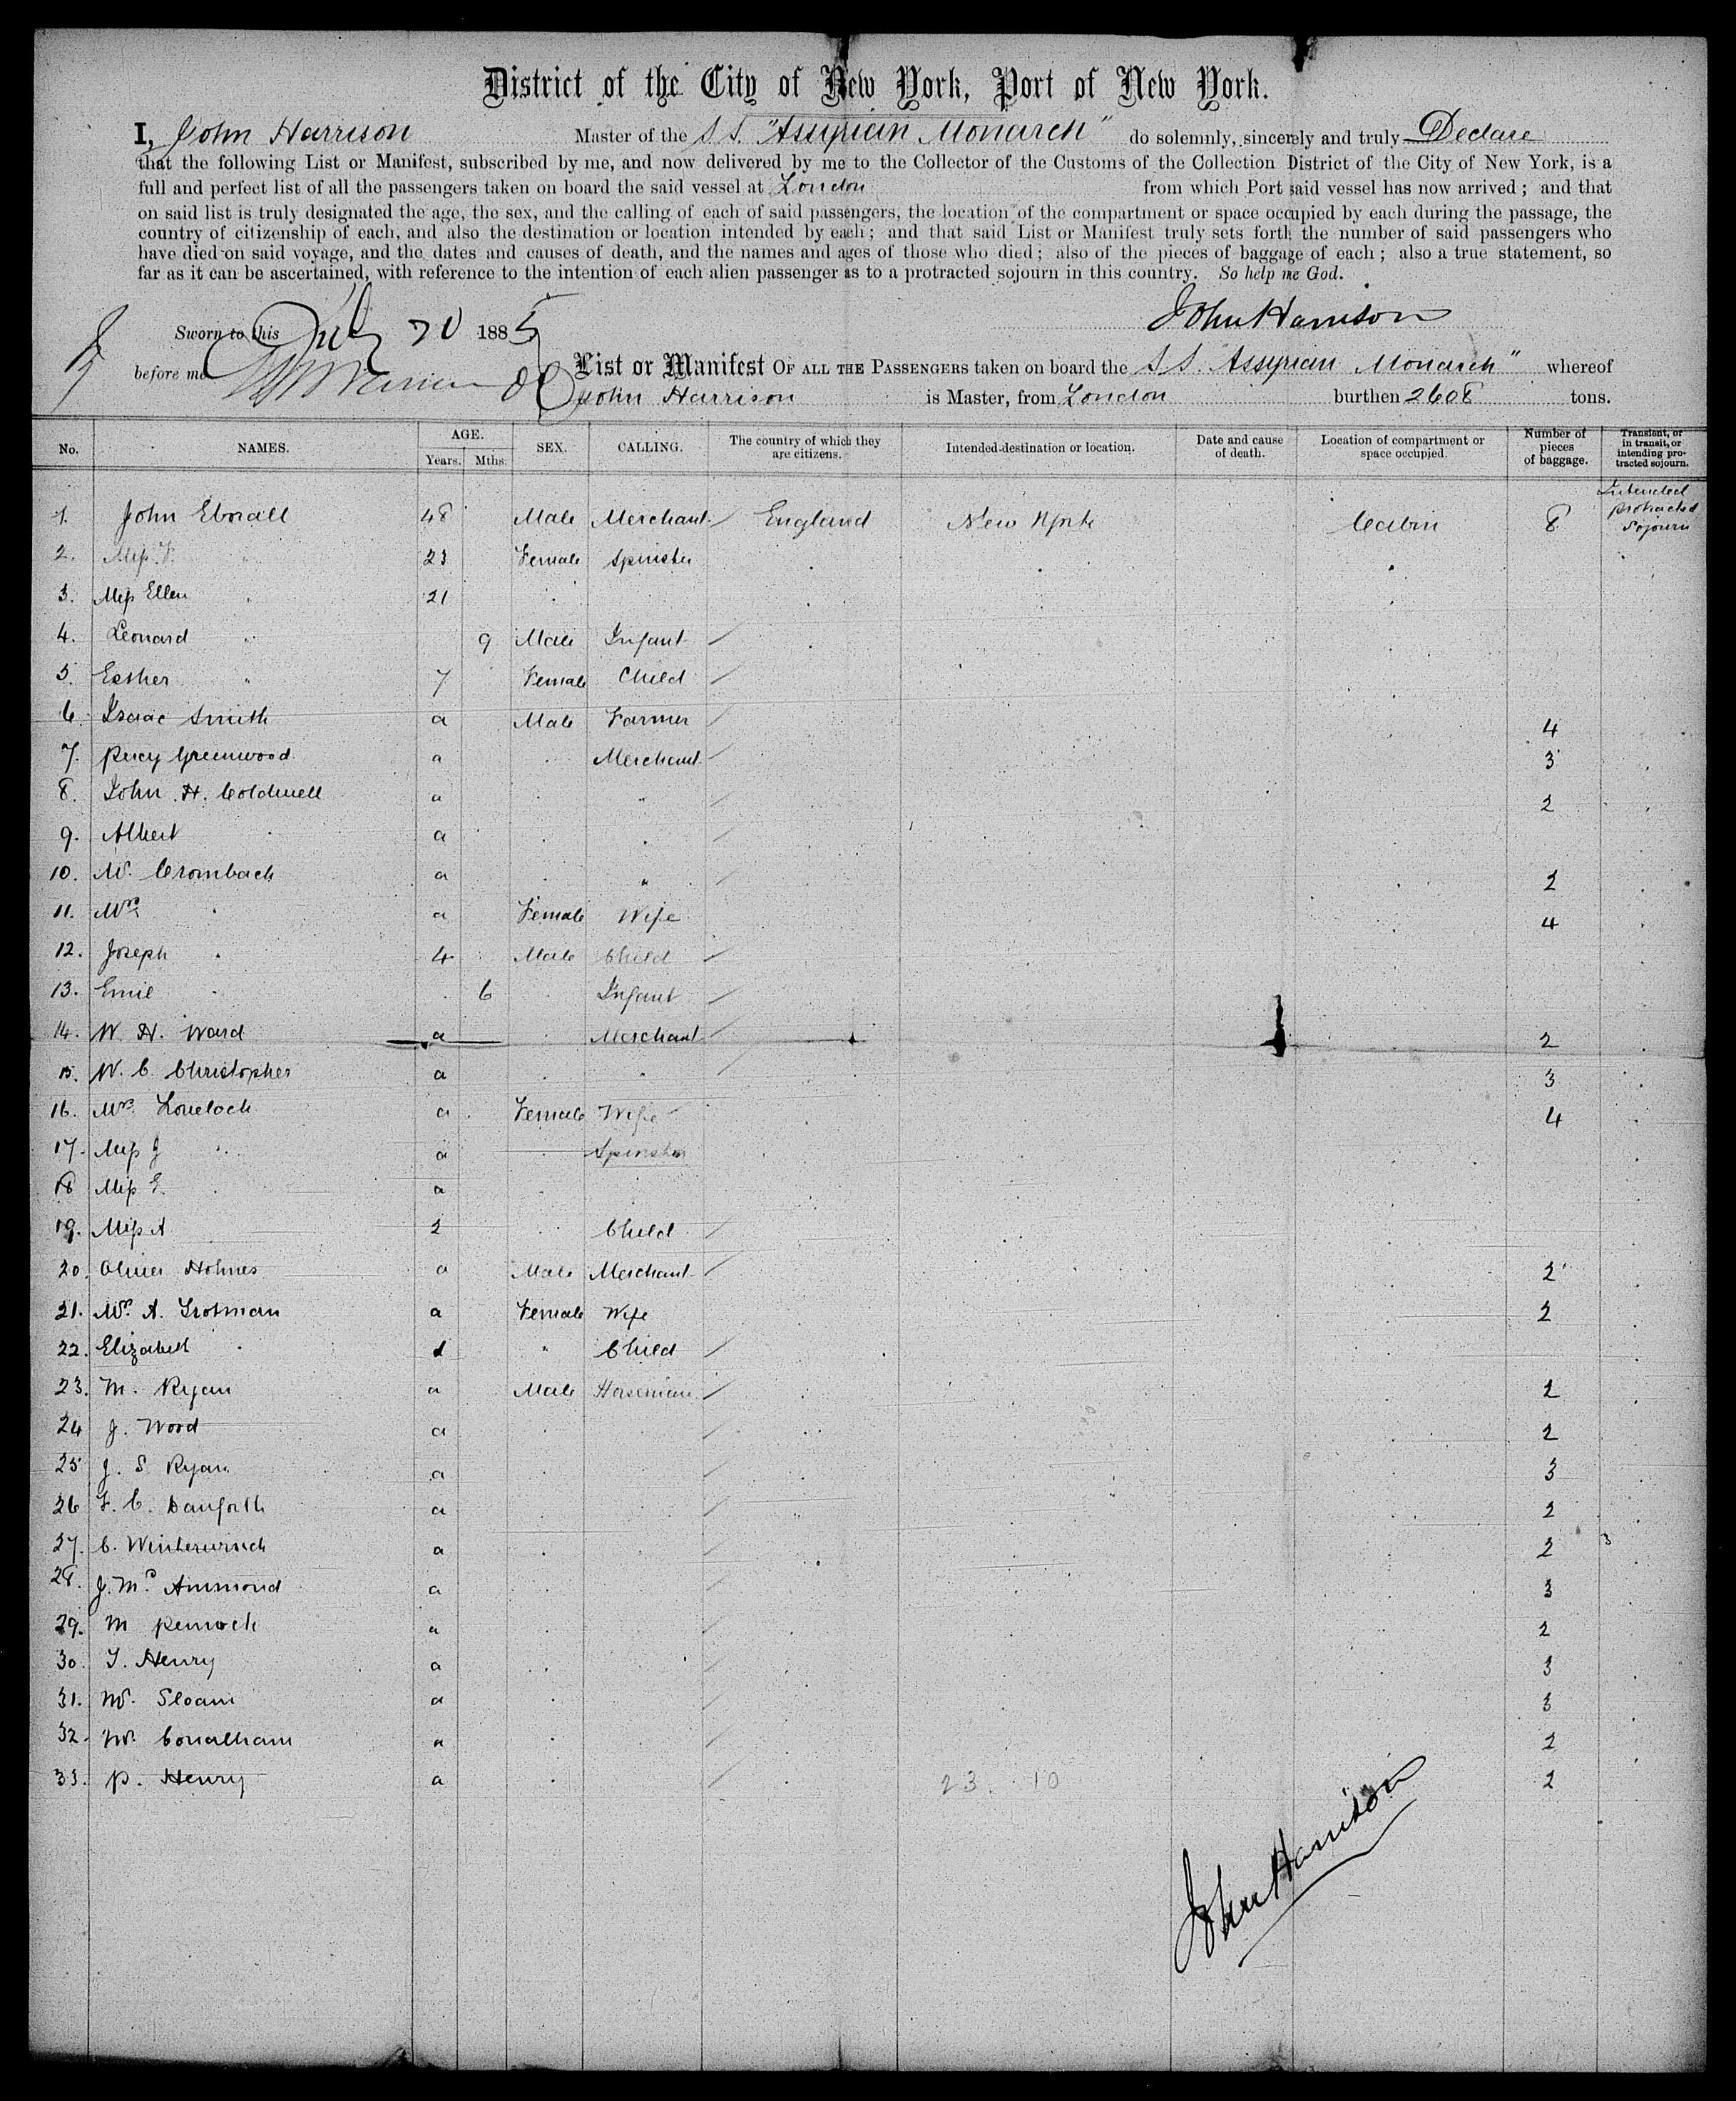 District of the City of New York, Port of New York.
I, John Harrison Master of the S.S. "Assyrian Monarch" do solemnly, sincerely and truly Declare
that the following List or Manifest, subscribed by me, and now delivered by me to the Collector of the Customs of the Collection District of the City of New York, is a
full and perfect list of all the passengers taken on board the said vessel at London from which Port said vessel has now arrived; and that
on said list is truly designated the age, the sex, and the calling of each of said passengers, the location of the compartment or space occupied by each during the passage, the
country of citizenship of each, and also the destination or location intended by each; and that said List or Manifest truly sets forth the number of said passengers who
have died on said voyage, and the dates and causes of death, and the names and ages of those who died; also of the pieces of baggage of each; also a true statement, so
far as it can be ascertained, with reference to the intention of each alien passenger as to a protracted sojourn in this country. So help me God.
John Harrison
Sworn to this July 20 1885
before me
List or Manifest OF ALL THE PASSENGERS taken on board the S.S. "Assyrian Monarch" whereof
John Harrison is Master, from London burthen 2608 tons.
No. NAMES. AGE. Years. Mths. SEX. CALLING. The country of which they are citizens. Intended destination or location. Date and cause of death. Location of compartment or space occupied. Number of pieces of baggage. Transient, or in transit, or intending protracted sojourn.
1. John Ebrall 48 Male Merchant England New York Cabin 8 Intended protracted Sojourn
2. Miss F. " 23 Female Spinster
3. Miss Ellen " 21
4. Leonard " 9 Male Infant
5. Esther " 7 Female Child
6. Isaac Smith a Male Farmer 4
7. Percy Greenwood a Merchant 3
8. John H. Coldwell a " 2
9. Albert a
10. M. Crombach a " 2
11. Mrs a Female Wife 4
12. Joseph 4 Male Child
13. Emil 6 Infant
14. W. H. Ward a Merchant 2
15. W. C. Christopher a " 3
16. Mrs Lovelock a Female Wife 4
17. Miss J " a Spinster
18 Miss E. a
19. Miss A 2 Child
20. Oliver Holmes a Male Merchant 2
21. Mrs A. Trotman a Female Wife 2
22. Elizabeth " Child
23. M. Ryan a Male Horseman 2
24 J. Wood a 2
25 J. S. Ryan a 3
26 F. C. Danforth a 2
27. C. a 2 3
28. J. Mc Ammond a 3
29. M a 2
30. T. Henry a 3
31. W. Sloam a 3
32. W. a 2
33. P. Henry a 23. 10 2
John Harrison